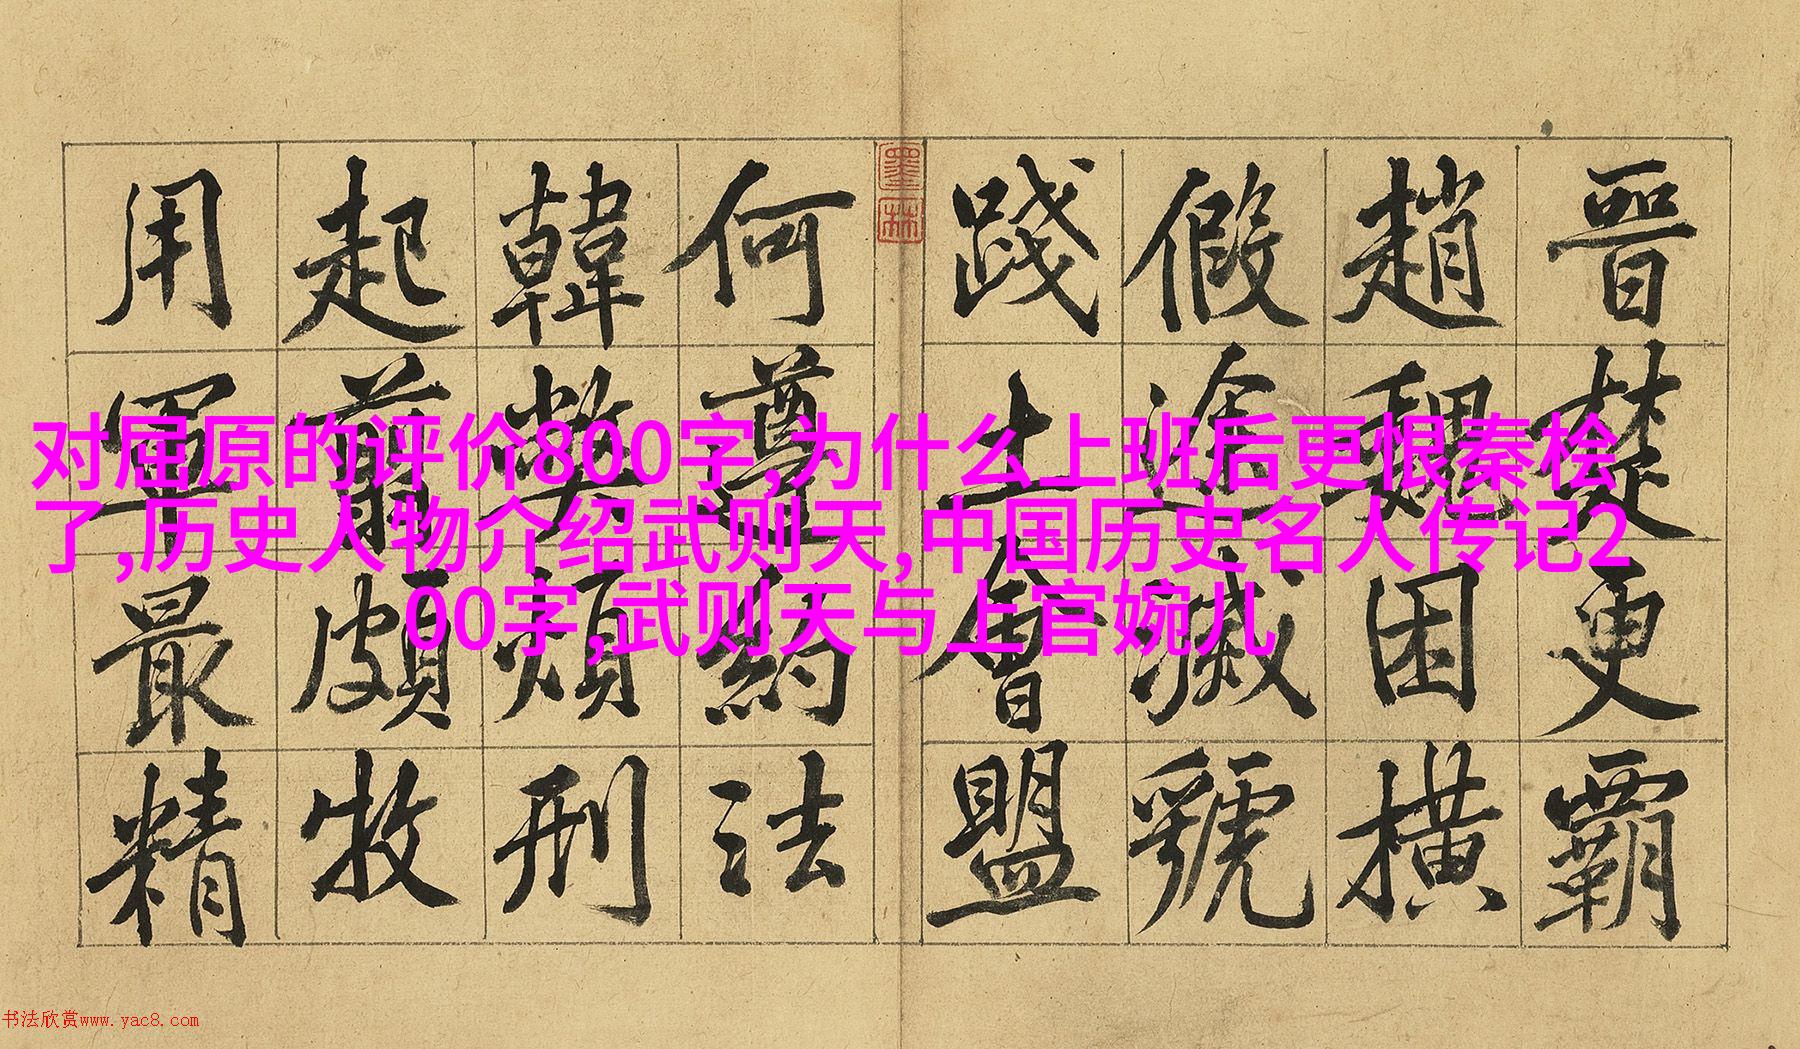 晉楚更霸
趙魏困橫
假途滅虢
踐土會盟
墨林
何遵約法
韓弊煩刑
起翦頗牧
用軍最精
对屈原的评价800字,为什么上班后更恨秦桧
了,历史人物介绍武则天,中国历史名人传记2
00字,武则天与上官婉儿
书法欣赏www.yac8.com